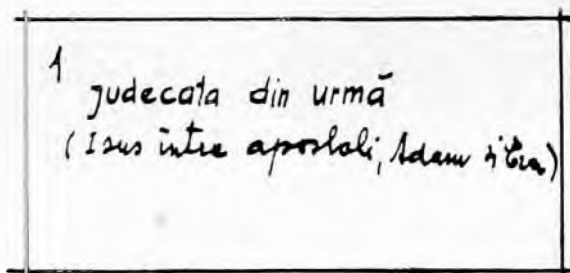 1
Judecata din urmă
(Isus între apostoli, Adam și Eva)